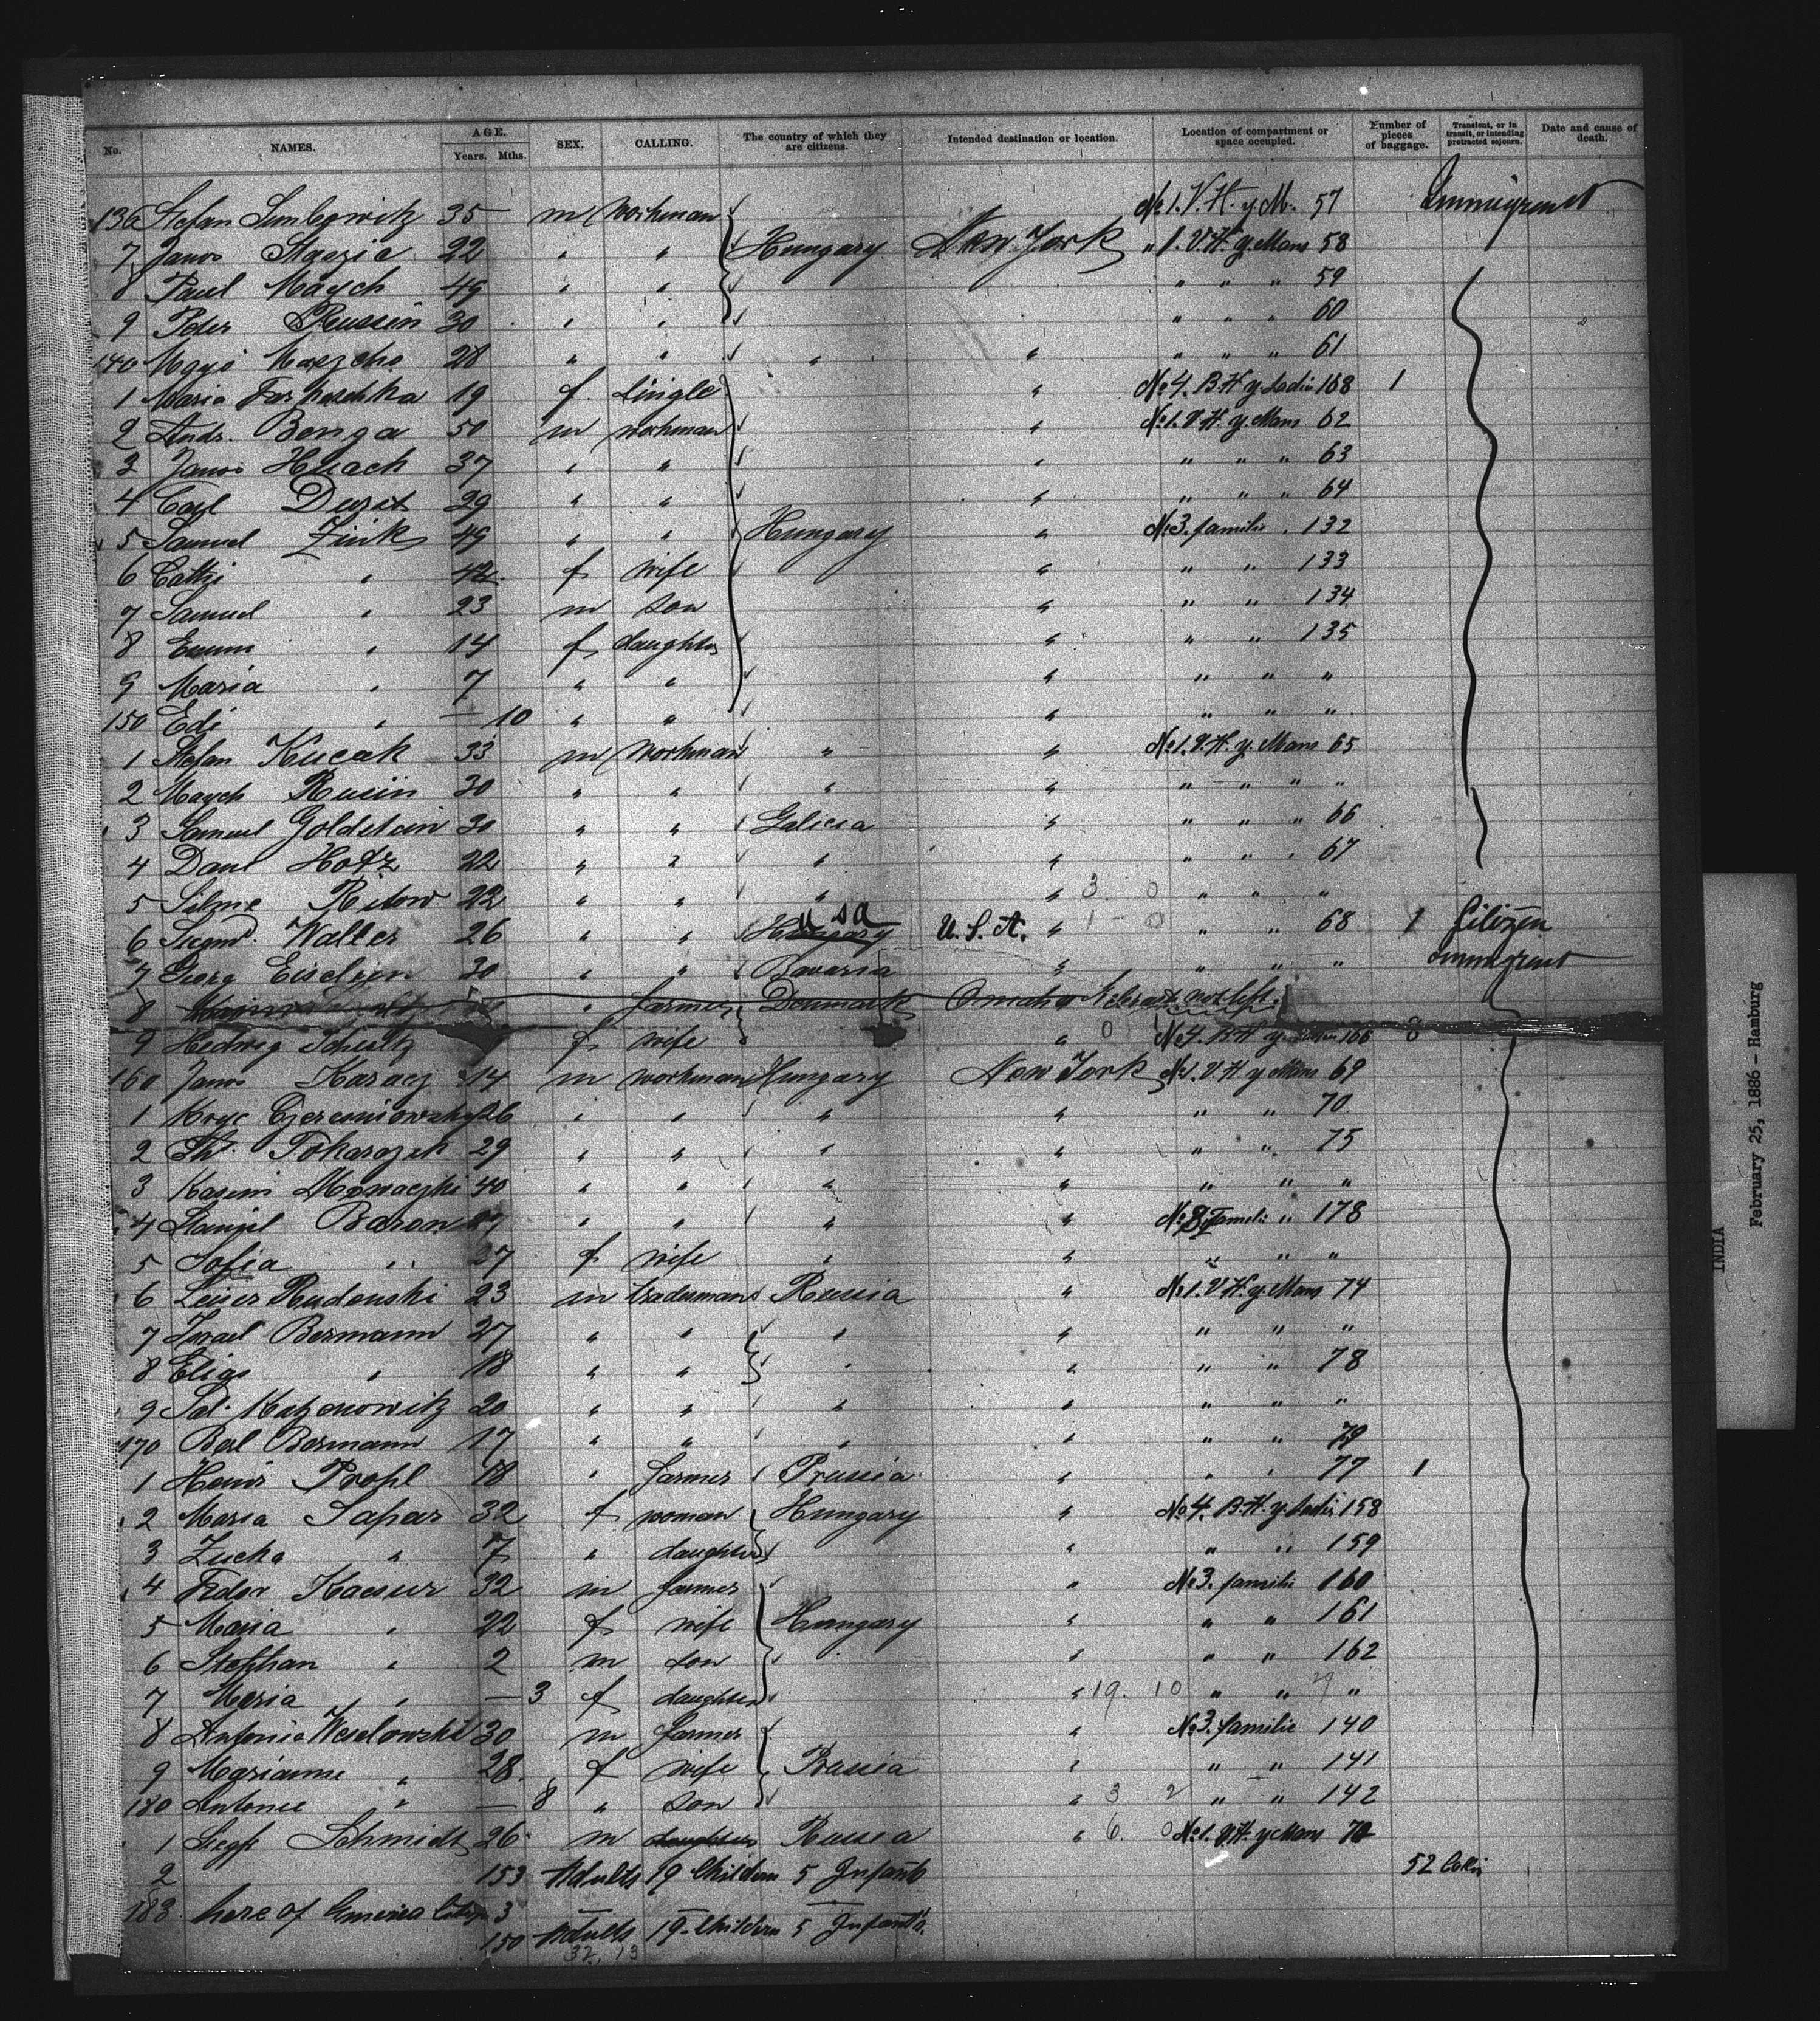 No. NAMES. AGE. Years. Mths. SEX. CALLING. The country of which they are citizens. Intended destination or location. Location of compartment or space occupied. Number of pieces of baggage. Transient, or in transit, or intending protracted sojourn. Date and cause of death.
136 Stefan 35 m workman No 1. V. H. y. M. 57 Immigrant
7 Janos 22 " " Hungary New York " 1. V. H. y. Mans 58
8 Paul Maych 49 " " " " " 59
9 Peter Russin 30 " " " " " 60
140 28 " " " " " " " 61
1 Maria 19 f. Single " No 4. B. H y Ladies 168 1
2 Andr. Benga 50 m workman " No 1. V. H. y. Mans 62
3 Janos Hnach 37 " " " " " " 63
4 Carl Durst 29 " " " " " " 64
5 Samuel Zink 49 " " Hungary " No 3. familie " 132
6 Cathi " 42 f wife " " " 133
7 Samuel " 23 m son " " " 134
8 Emmi " 14 f daughter " " " 135
9 Maria " 7 " " " " " "
150 Edi " — 10 " " " " " "
1 Stefan Kucak 33 m workman " " No 1. V. H. y. Mans 65
2 Maych Rusin 30 " " " " " " " "
3 Samuel Goldstein 30 " " Galicia " " " " 66
4 Danl Hotz 22 " " " " " " " 67
5 Silme Ritow 22 " " " " 3 0 " " "
6 Siegm'd. Walter 26 " " Hungary usa U. S. A. " 1 - 0 " " 68 1 Citizen
7 Georg 30 " " Bavaria " " " " Immigrant
8 " farmer Denmark Omaha Nebraska not left
9 Hedwig Schultz f wife " 0 No 4. B. H y Ladies 166 8
160 Janos Karacz 14 m workman Hungary New York No 1. V. H. y Mans 69
1 26 " " " " " " 70
2 Th. Tokarczik 29 " " " " " " 75
3 Kasim 40 " " " " " " "
4 Baron 27 " " " " No 3 Familie " 178
5 Sofia " 27 f wife " " " " "
6 Leiser Rudenski 23 m tradesman Russia " No 1. V. H. y. Mans 74
7 Israel Bermann 27 " " " " " " "
8 Elias " 18 " " " " " " 78
9 Sal. Katzenowitz 20 " " " " " " "
170 Berl Bermann 17 " " " " " " 79
1 Heinr Propl 18 " farmer Prussia " " " 77 1
2 Maria Sapar 32 f woman Hungary " No 4. B. H. y. Ladies 158
3 Zucka " 7 " daughter " " " 159
4 Fedor 32 m farmer " No 3. familie 160
5 Maria " 22 f wife Hungary " " " 161
6 Stephan " 2 m son " " " 162
7 Maria " — 3 f daughter " 19. 10 " " 29 "
8 Antonie Weselowski 30 m farmer " No 3. familie 140
9 Marianne " 28 f wife Prussia " " " 141
180 Antonie " — 8 " son " 3 2 " " 142
1 Siegfr Schmidt 26 m daughter Russia " 6. 0 No 1. V. H. y Mans 70
2 153 Adults 19 Children 5 Infants 52 Collis
183 here of America Citizen 3 — — —
150 Adults 19 Children 5 Infants.
32. 13
INDIA
February 25, 1886 - Hamburg